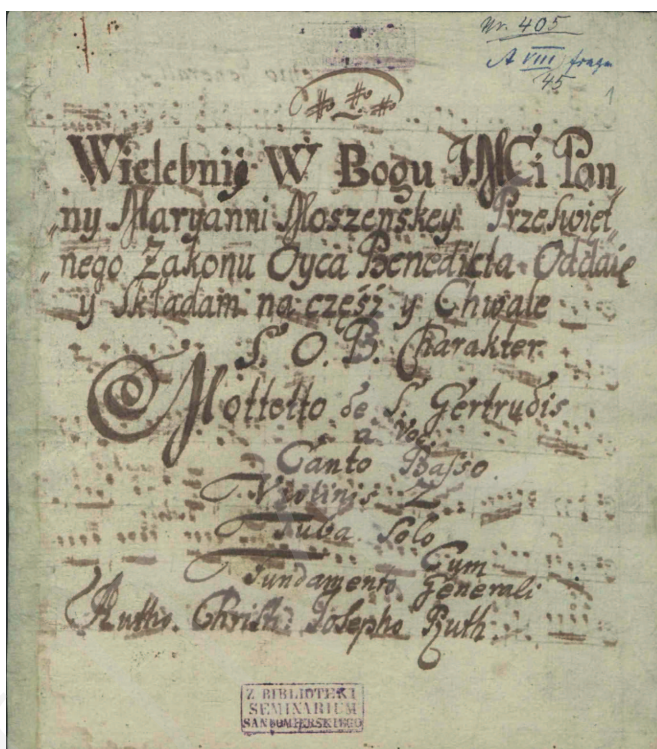 Nr. 405
A VIII fragm
45
1
Wielebnij W Bogu JMCi Pan„
„ny Maryanni Moszenskey Prześwięt„
„nego Zakonu Oyca Benedicta Oddaię
y Składam na cześź y Chwałe
S. O. B. Charakter
Mottetto de S. Gertrudis
a Voc.
Canto Basso
Violinis 2
Tuba Solo
Cum
Fundamento Generali
Auth. Christ. Josepho Ruth.
Z BIBLIOTEKI
SEMINARIUM
SANDOMIERSKIEGO